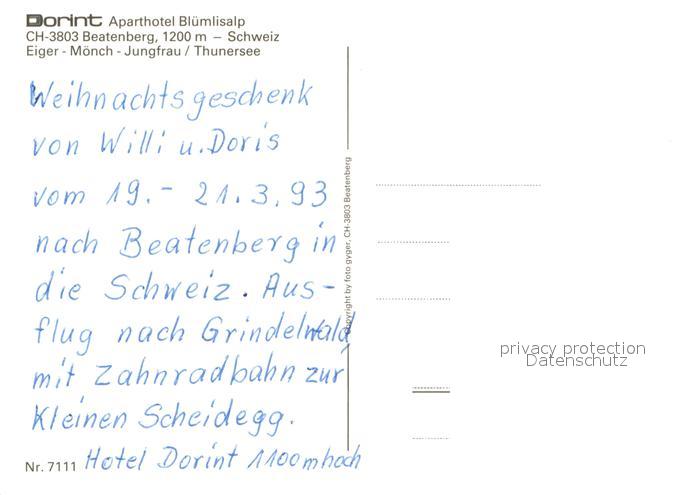 Dorint Aparthotel Blümlisalp
CH-3803 Beatenberg, 1200 m – Schweiz
Eiger - Mönch - Jungfrau / Thunersee
Weihnachtsgeschenk
von Willi u. Doris
vom 19.- 21.3.93
nach Beatenberg in
die Schweiz. Aus-
flug nach Grindelwald
mit Zahnradbahn zur
Kleinen Scheidegg.
Nr. 7111 Hotel Dorint 1100m hoch
Copyright by foto gyger, CH-3803 Beatenberg
privacy protection
Datenschutz